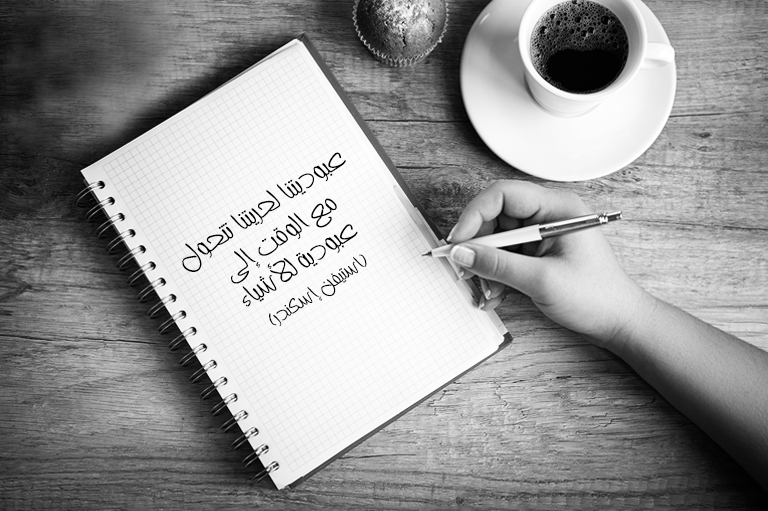 عبوديتنا لحريتنا تتحول
مع الوقت إلى
عبودية لأشياء
(استيفان إسكندر)